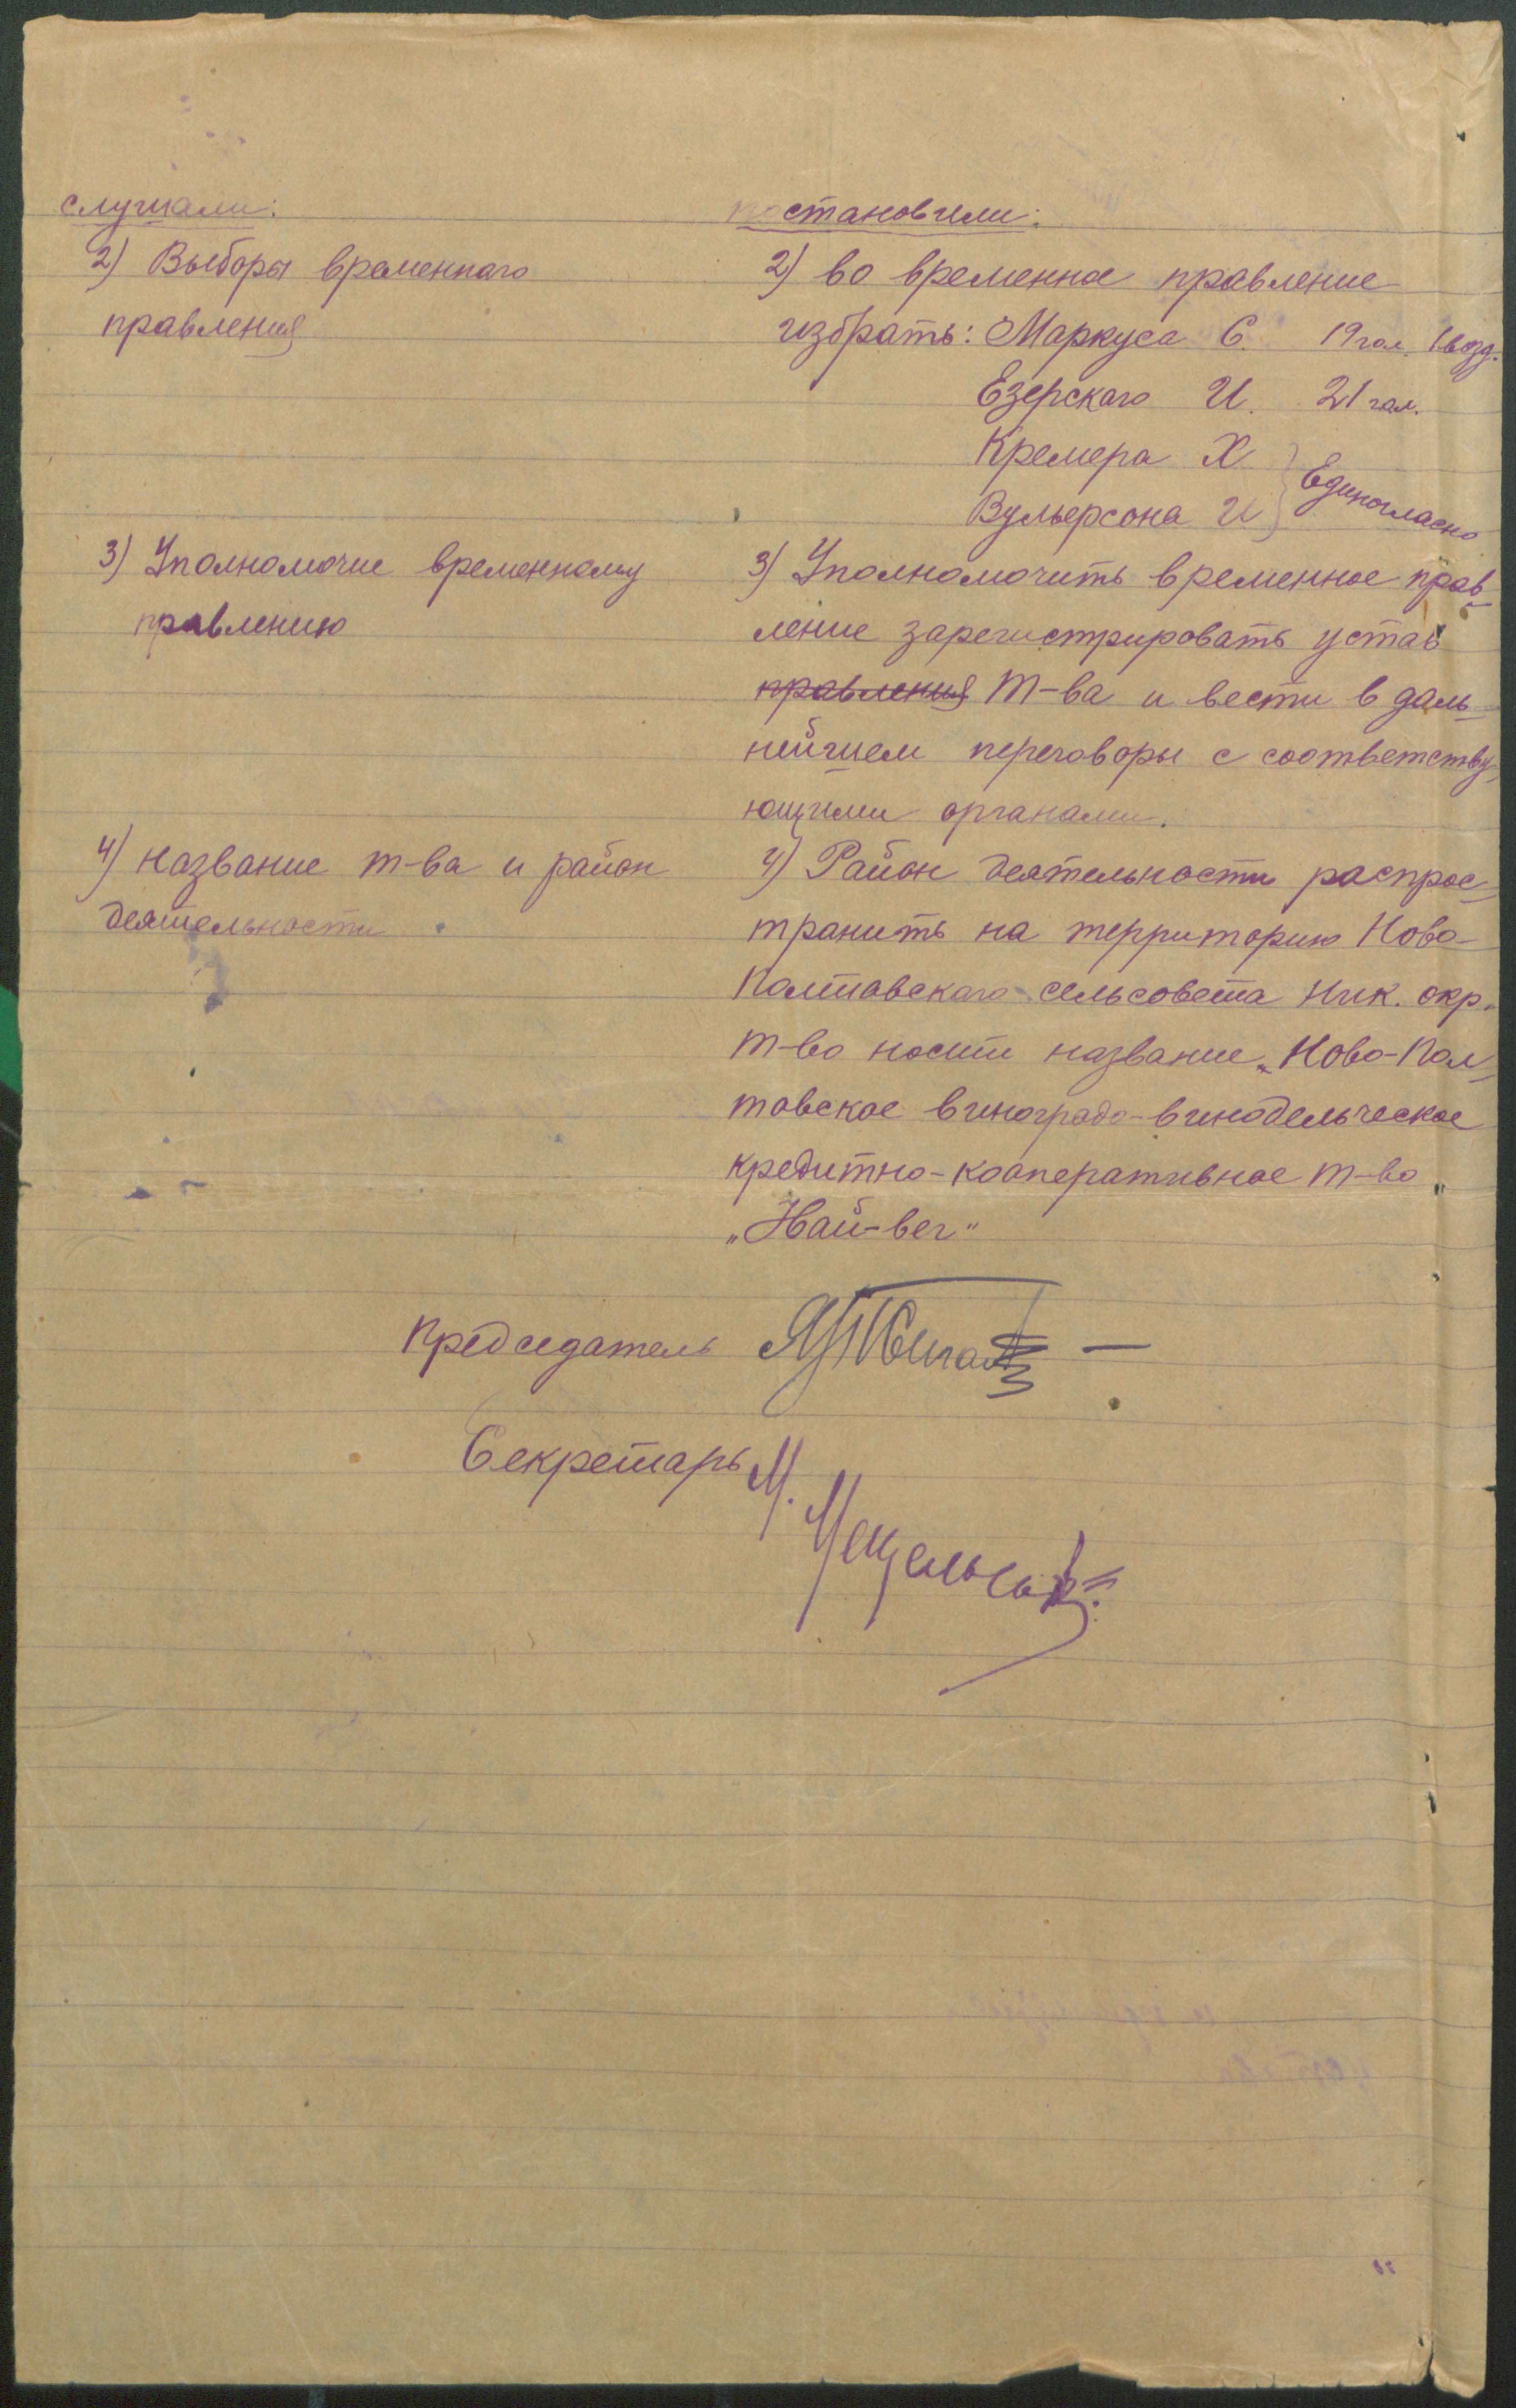 слушали:
2) Выборы временнаго
правления
3) Уполномочие временному
правлению
4) Название т-ва и район
деятельности.
постановили:
2) во временное правление
избрать: Маркуса С. 19 гол. 1 возд.
Езерскаго И. 21 гол.
Кремера Х
Вульерсона И } Единогласно
3) Уполномочить временное прав-
ление зарегистрировать устав
правления Т-ва и вести в даль-
нейшем переговоры с соответству-
ющими органами.
4) Район деятельности распрос-
транить на территорию Ново-
Полтавскаго сельсовета Ник. окр.
Т-во носит название „Ново-Пол-
тавское виноградо-винодельческое
кредитно-кооперативное т-во
„Най-вег"
Председатель
Секретарь М.